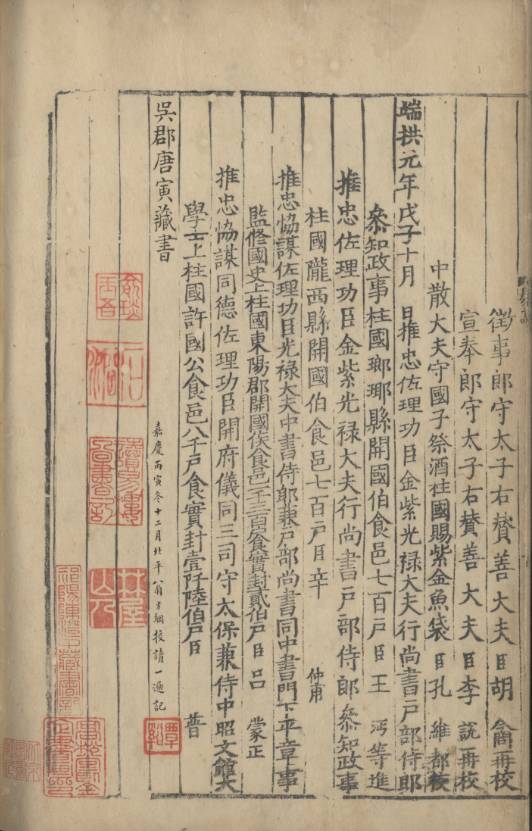 徵事郎守太子右賛善大夫臣胡 令問再校
宣奉郎守太子右賛善大夫臣李 說再校
中散大夫守國子祭酒柱國賜紫金魚袋臣孔 維都校
端拱元年戊子十月 日推忠佐理功臣金紫光禄大夫行尚書户部侍郎
叅知政事柱國瑯琊縣開國伯食邑七百户臣王 沔等進
推忠佐理功臣金紫光禄大夫行尚書户部侍郎叅知政事
柱國隴西縣開國伯食邑七百户臣辛 仲甫
推忠協謀佐理功臣光禄大夫中書侍郎兼户部尚書同中書門下平章事
監修國史上柱國東陽郡開國侯食邑一千三百户食實封貳伯户臣吕 蒙正
推忠協謀同德佐理功臣開府儀同三司守太保兼侍中昭文館大
學士上柱國許國公食邑八千户食實封壹阡陸伯户臣 普
吳郡唐寅藏書
嘉慶丙寅冬十二月北平翁方綱校讀一過記
覃谿